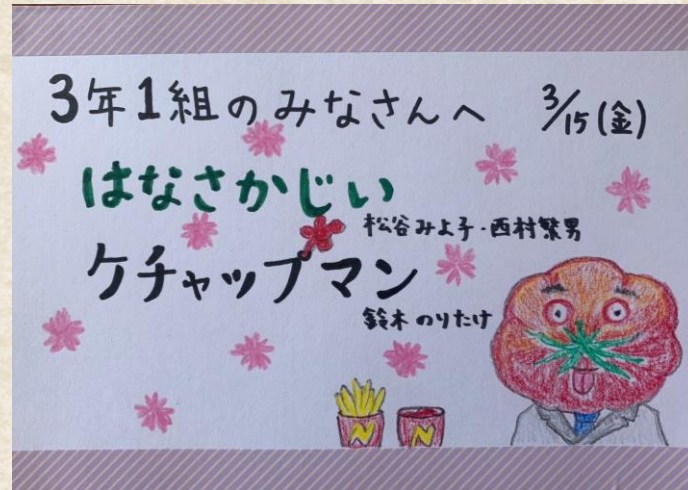 3年1組のみなさんへ 3/15(金)
はなさかじい
松谷みよ子・西村繁男
ケチャップマン
鈴木のりたけ
N N